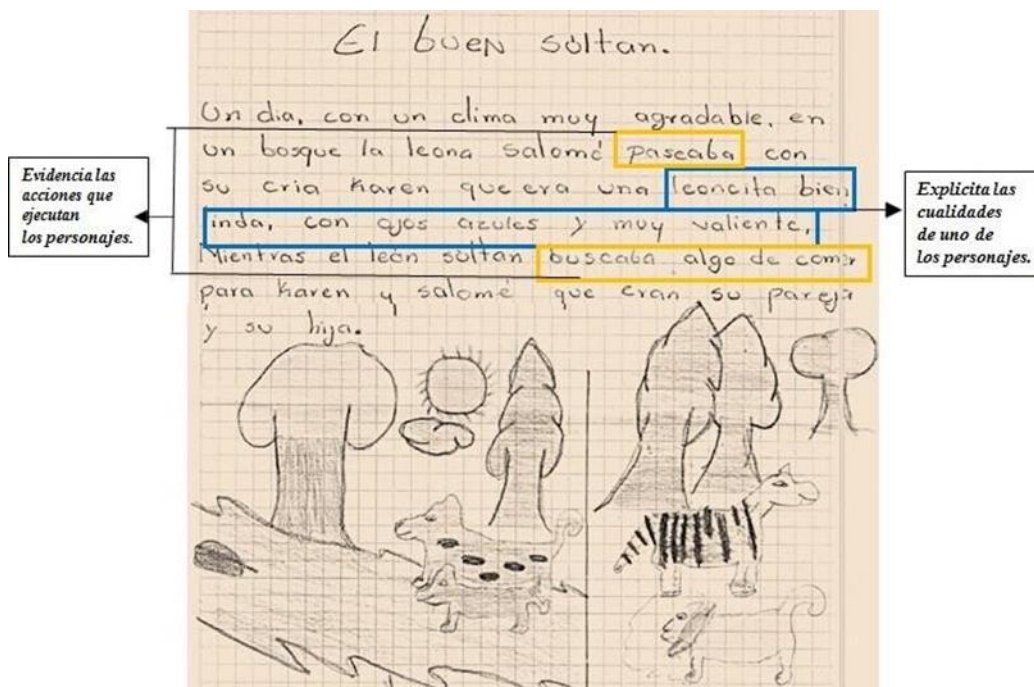 El buen sóltan.
Un dia, con un clima muy agradable, en
un bosque la leona Salomé paseaba con
su cria Karen que era una leoncita bien
linda, con ojos azules y muy valiente,
Mientras el león sóltan buscaba algo de comer
para Karen y salomé que eran su pareja
y su hija.
Evidencia las
acciones que
ejecutan
los personajes.
Explicita las
cualidades
de uno de
los personajes.